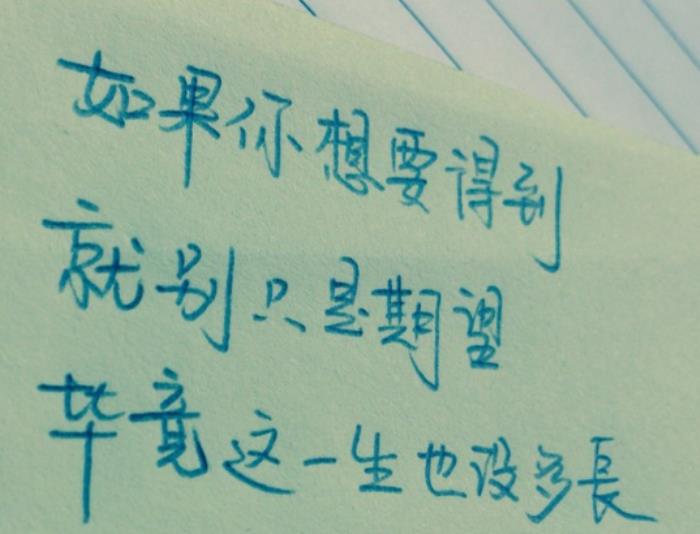 如果你想要得到
就别只是期望
毕竟这一生也没多長